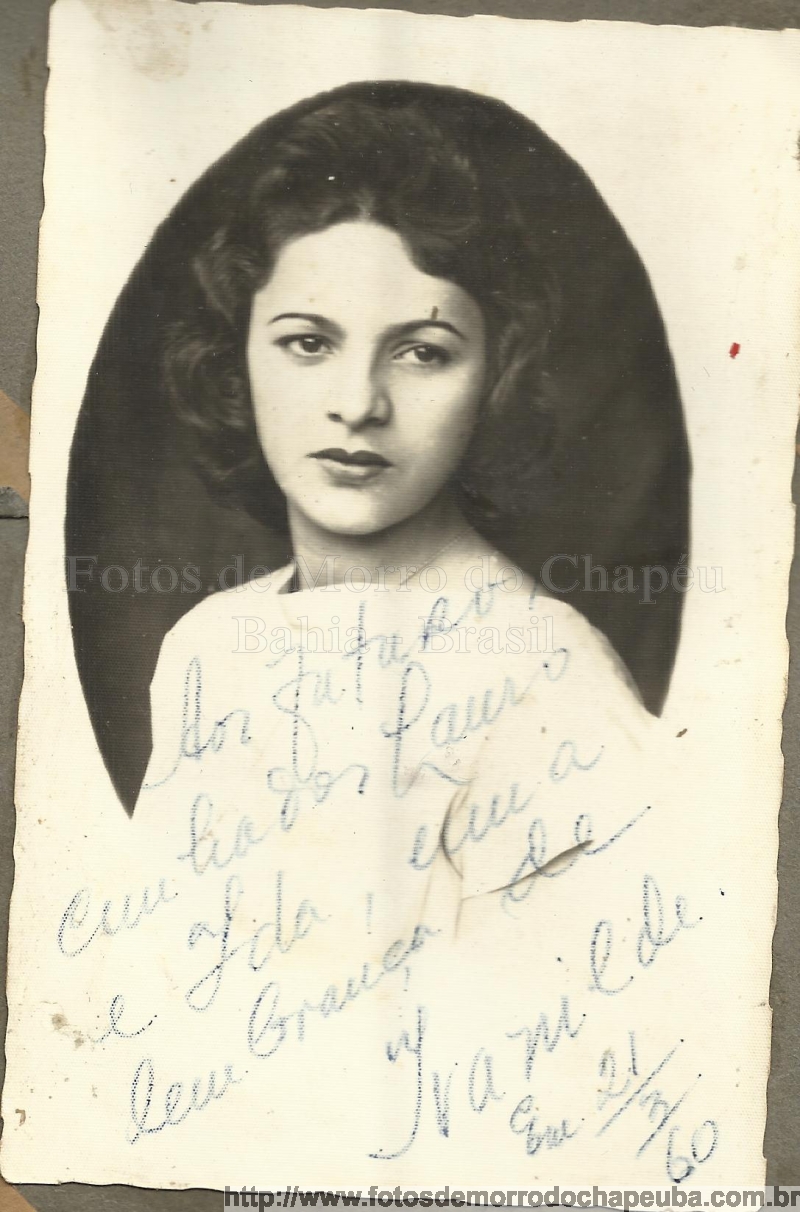 Fotos de Morro do Chapéu
Bahia - Brasil
Aos futuros,
cunhados Lauro
e Ilda, uma
lembrança de
Ivanilde
Em 21/3/60
http://www.fotosdemorrodochapeuba.com.br